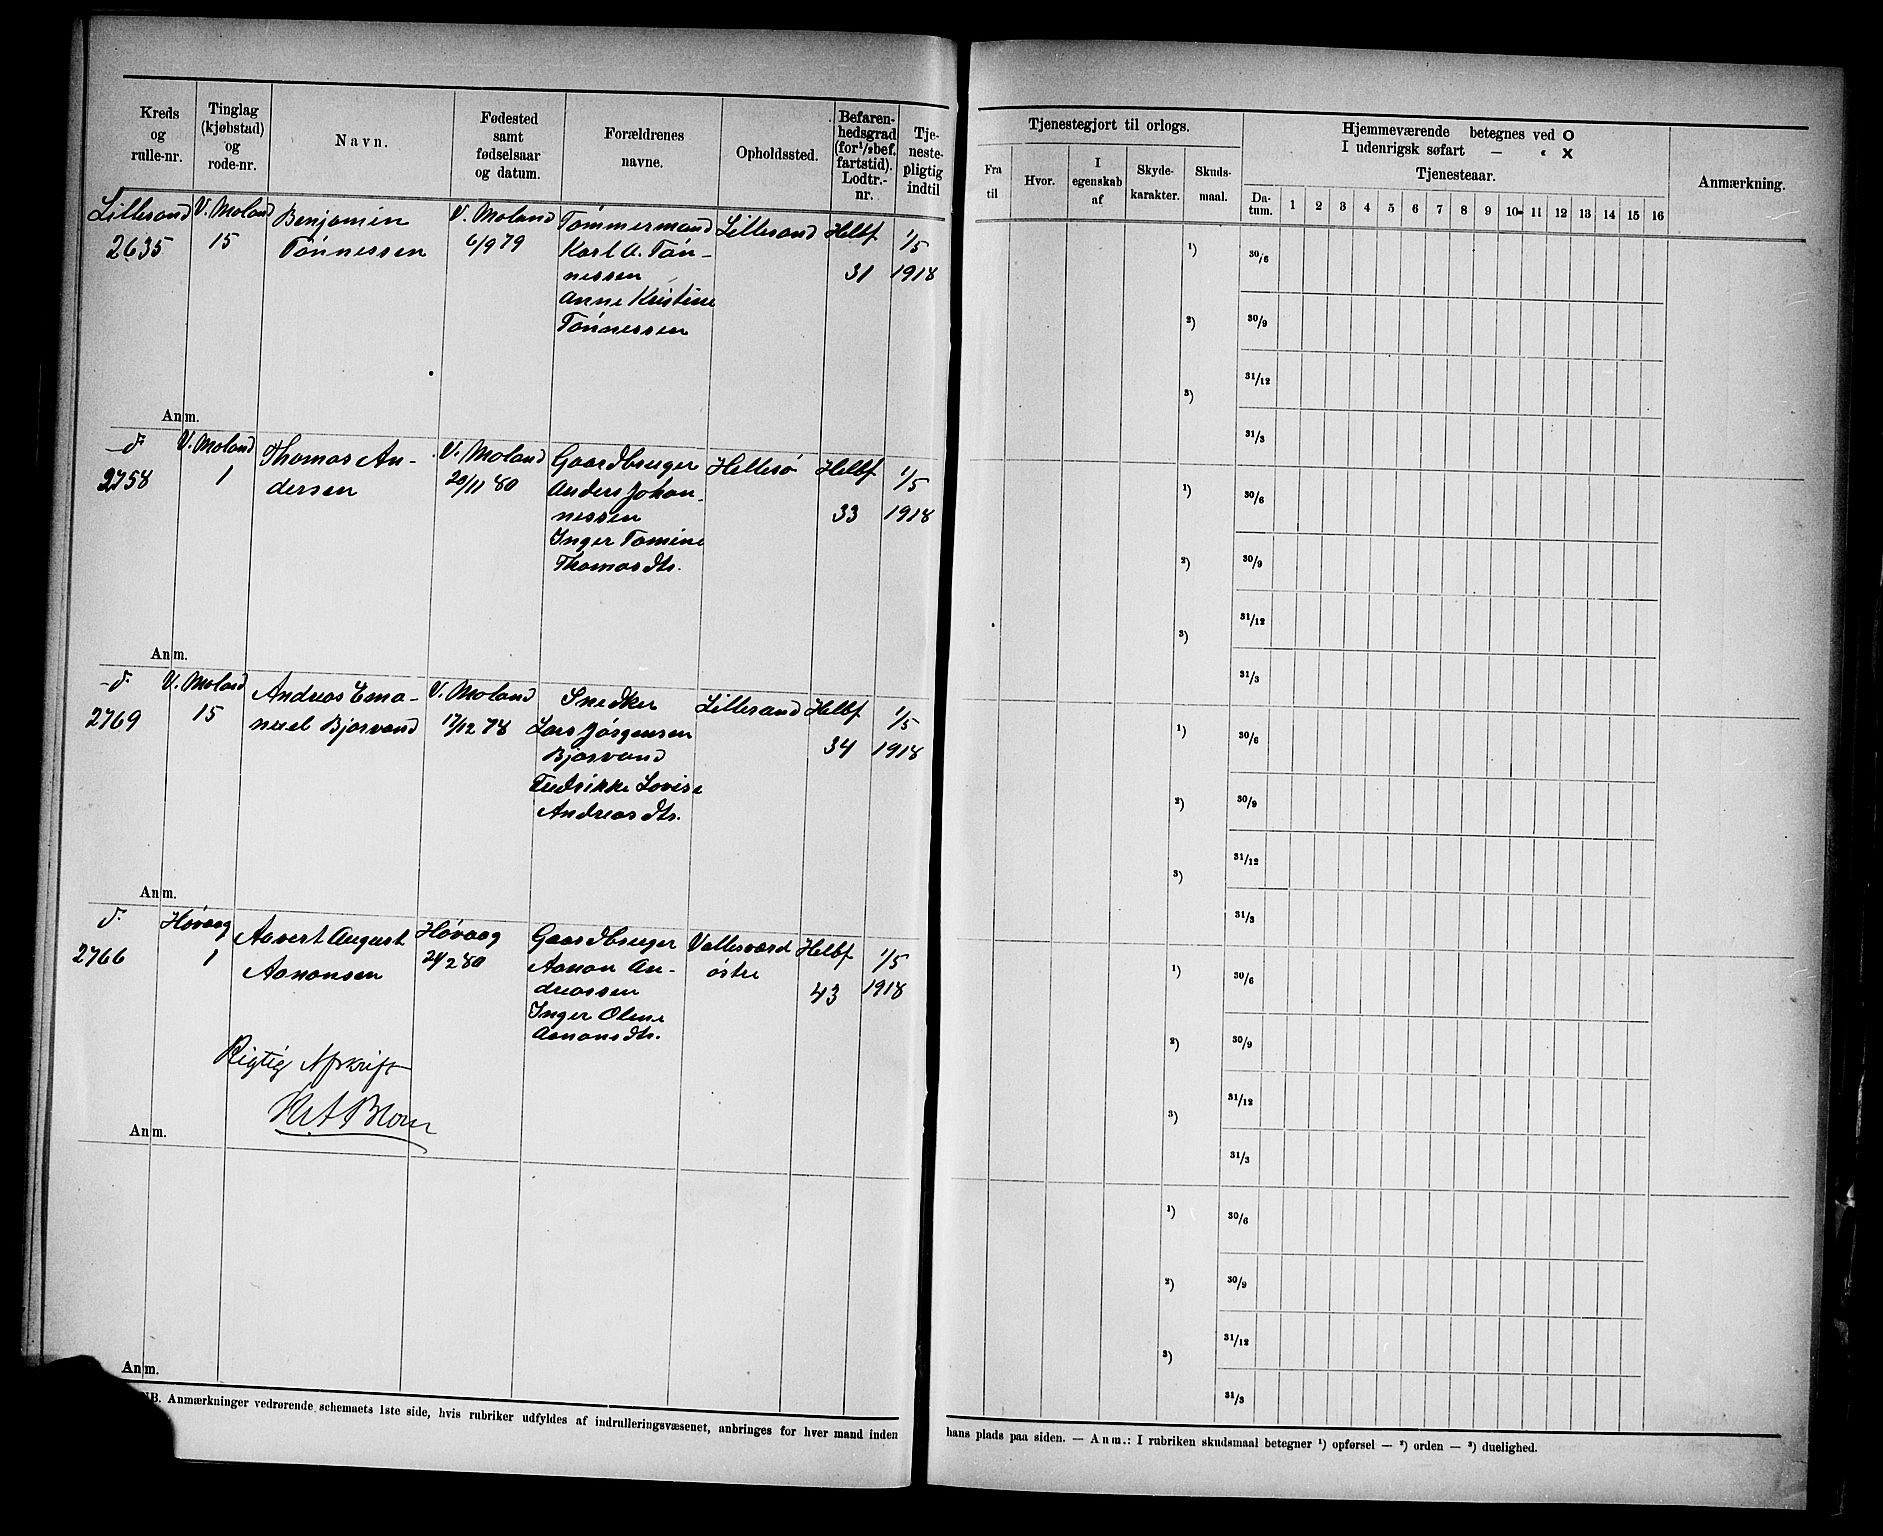 Kreds og rulle-nr.
Tinglag (kjøbstad) og rode-nr.
Navn.
Fødested samt fødselsaar og datum.
Forældrenes navne.
Opholdssted.
Befarenhedsgrad (for ½ bef. fartstid). Lodtr.-nr.
Tjenestepligtig indtil
Tjenestegjort til orlogs.
Fra til
Hvor.
I egenskab af
Skydekarakter.
Skudsmaal.
Hjemmeværende betegnes ved O
I udenrigsk søfart — « X
Tjenesteaar.
Datum. 1 2 3 4 5 6 7 8 9 10 11 12 13 14 15 16
Anmærkning.
Lillesand
2635
V. Moland
15
Benjamin
Tønnessen
V. Moland
6/9 79
Tømmermand
Karl A. Tøn-
nessen
Anne Kristine
Tønnessen
Lillesand
Helbf
31
1/5
1918
1) 30/6
2) 30/9
3) 31/12
31/3
Anm.
d.
2758
V. Moland
1
Thomas An-
dersen
V. Moland
20/11 80
Gaardbruger
Anders Johan-
nessen
Inger Tomine
Thomasdtr.
Hellesø
Helbf
33
1/5
1918
1) 30/6
2) 30/9
3) 31/12
31/3
Anm.
d.
2769
V. Moland
15
Andreas Ema-
nuel Bjorvand
V. Moland
17/12 78
Snedker
Lars Jørgensen
Bjorvand
Fredrikke Lovise
Andreasdtr.
Lillesand
Helbf
34
1/5
1918
1) 30/6
2) 30/9
3) 31/12
31/3
Anm.
d.
2766
Høvaag
1
August
Aanonsen
Høvaag
24/2 80
Gaardbruger
Aanon An-
dreassen
Inger Oline
Aanonsdtr.
Vallesværd
østre
Helbf
43
1/5
1918
1) 30/6
2) 30/9
3) 31/12
31/3
Rigtig Afskrift
Anm.
1) 30/6
2) 30/9
3) 31/12
31/3
Anm.
NB. Anmærkninger vedrørende schemaets 1ste side, hvis rubriker udfyldes af indrulleringsvæsenet, anbringes for hver mand inden
hans plads paa siden. — Anm.: I rubriken skudsmaal betegner ¹) opførsel — ²) orden — ³) duelighed.